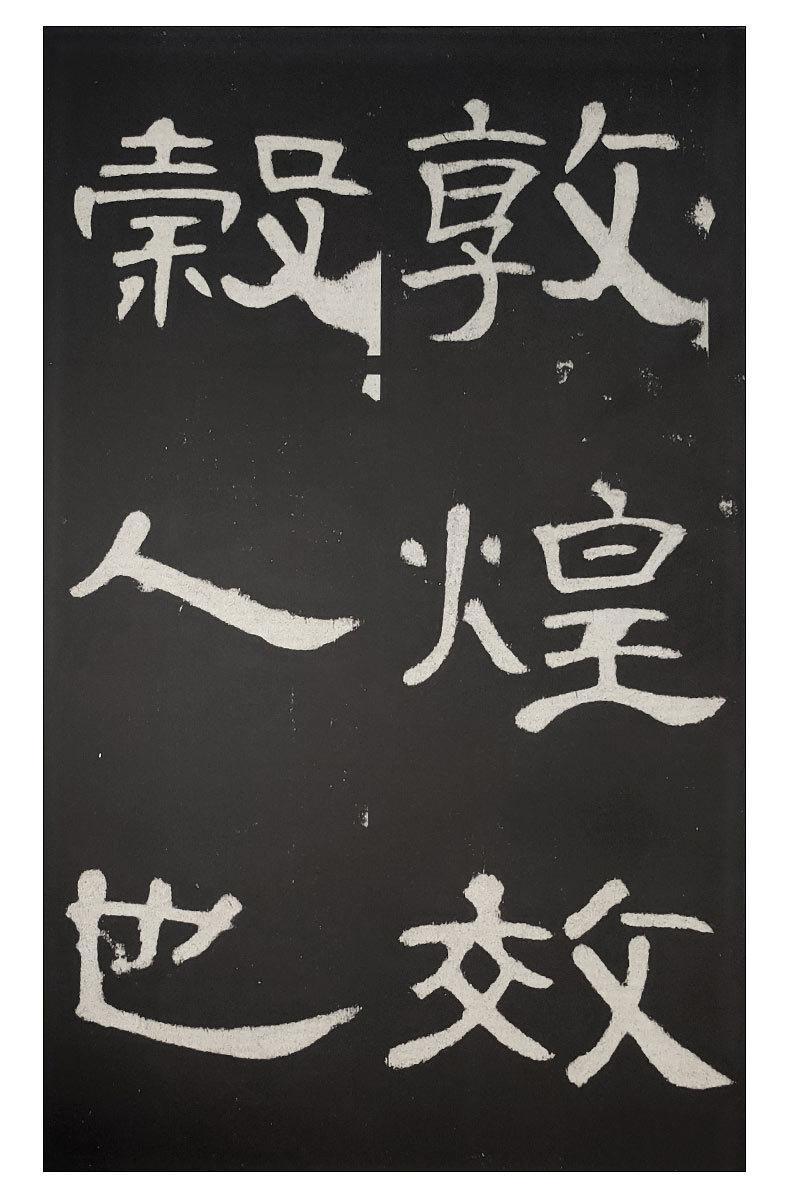 敦煌效
穀人也